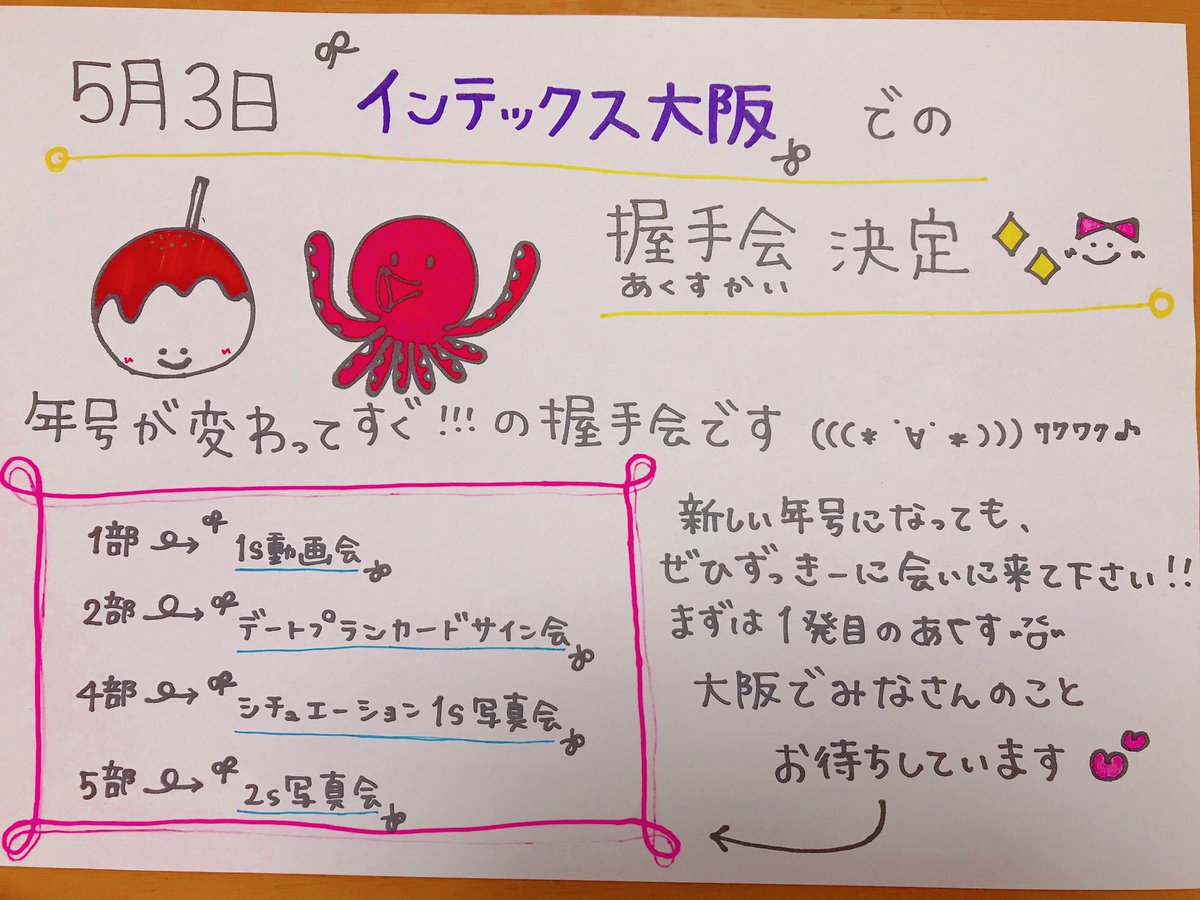 5月3日 インテックス大阪 での
握手会 決定
あくすかい
年号が変わってすぐ!!!の握手会です (((* ˙∀˙ *))) ワクワク♪
1部 → 1s動画会
2部 → デートプランカードサイン会
4部 → シチュエーション1s写真会
5部 → 2s写真会
新しい年号になっても、
ぜひずっきーに会いに来て下さい!!
まずは1発目のあやす
大阪でみなさんのこと
お待ちしています